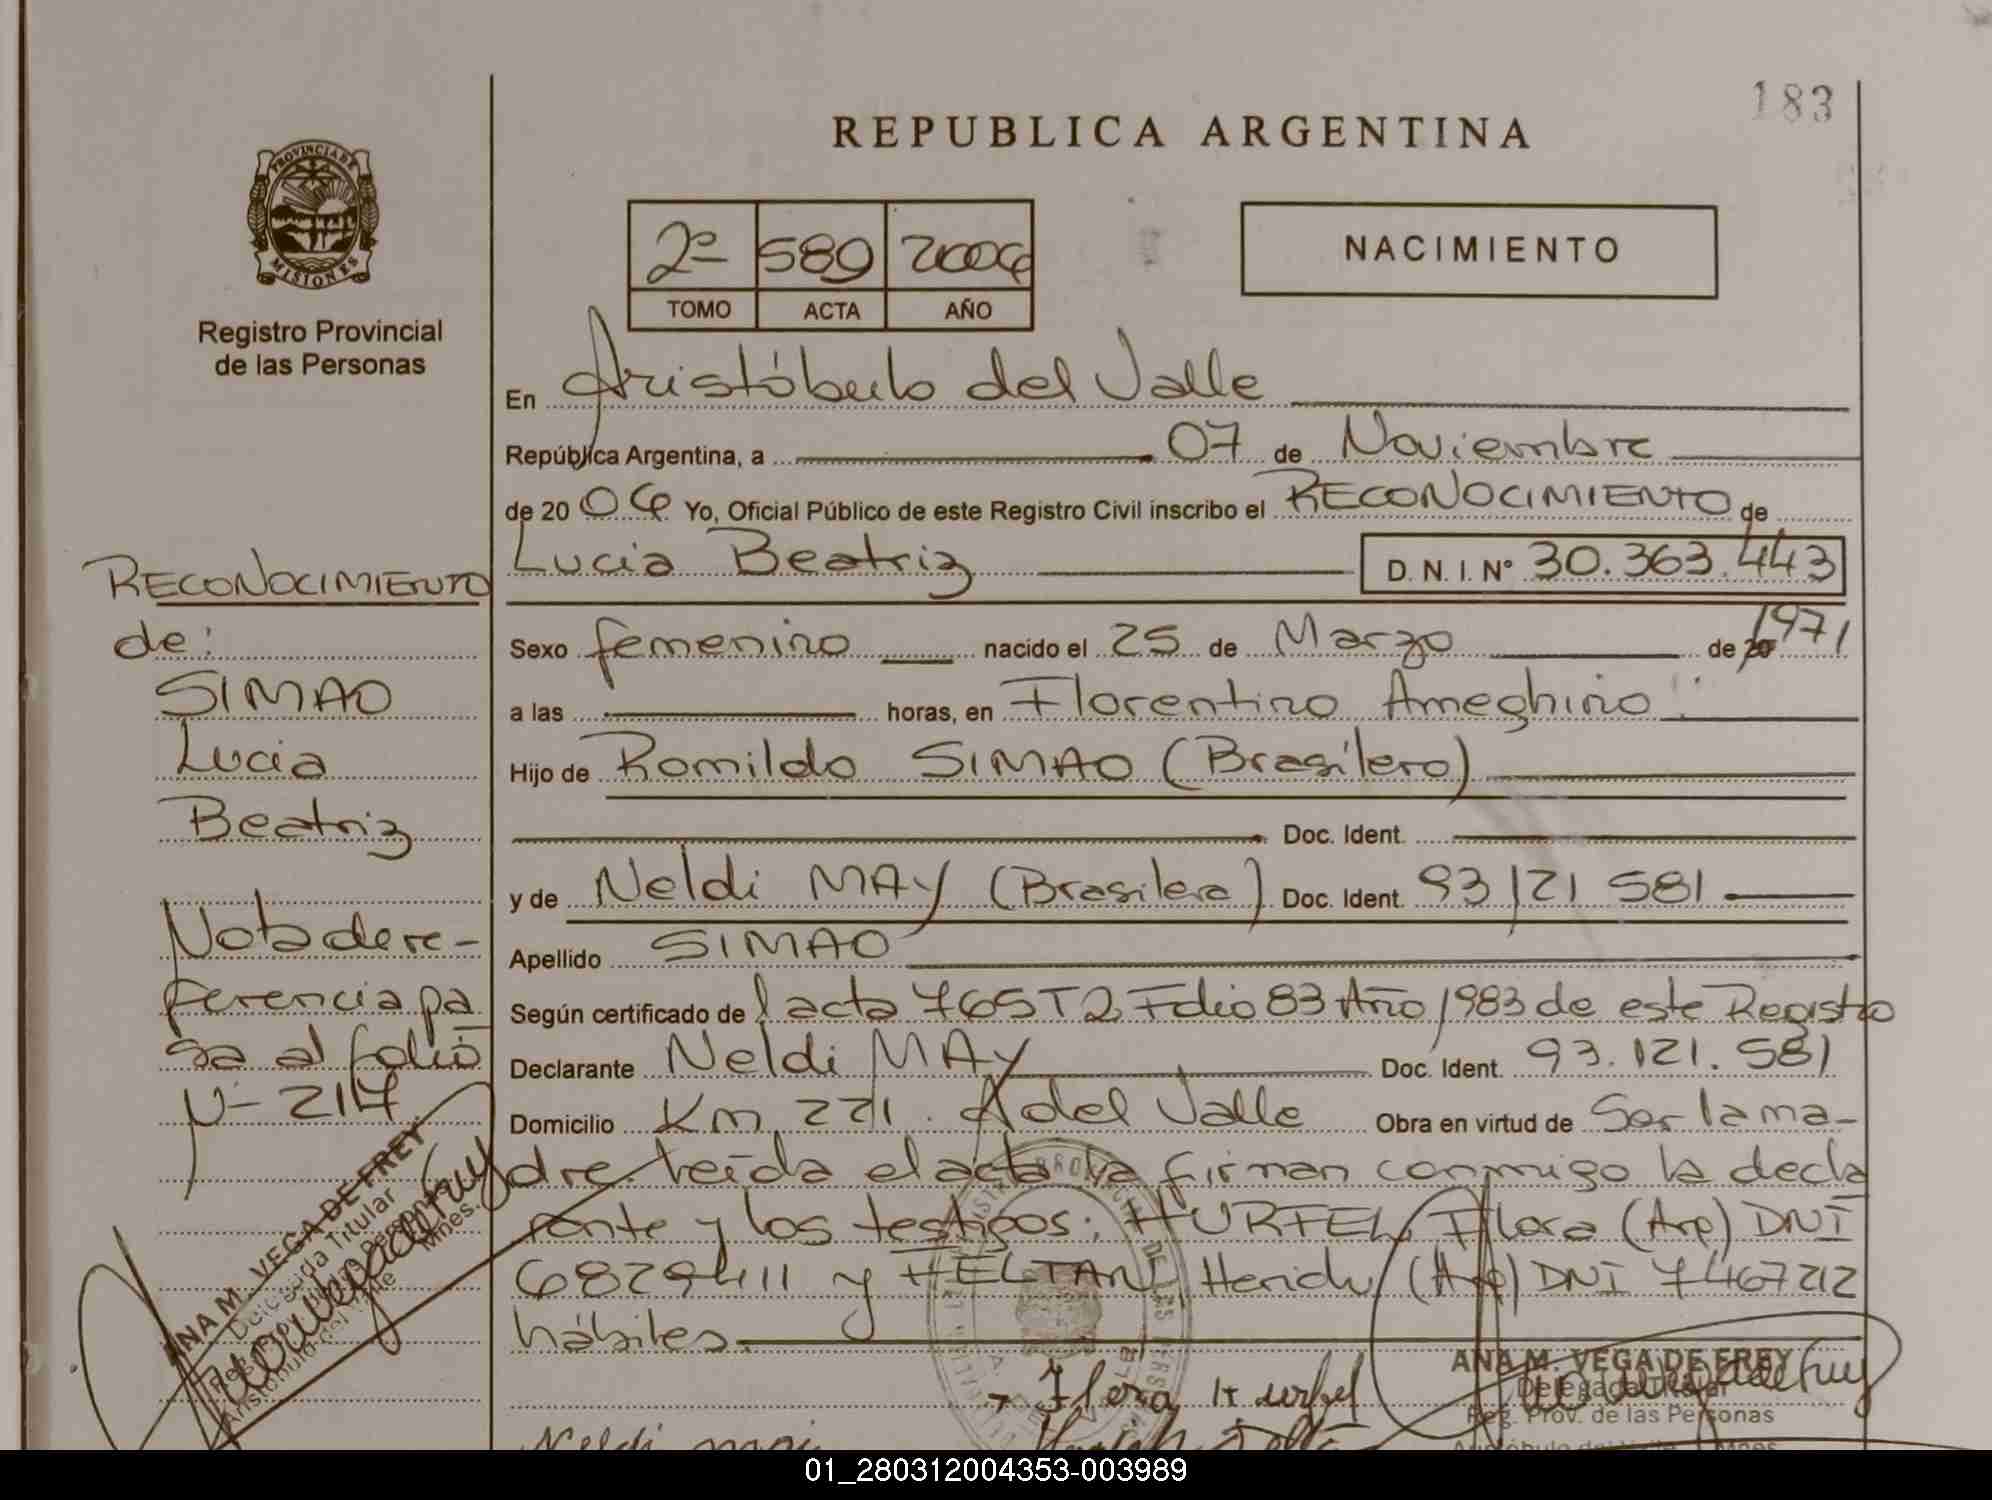 183
REPUBLICA ARGENTINA
PROVINCIA DE
MISIONES
Registro Provincial
de las Personas
2º 589 2006
TOMO ACTA AÑO
NACIMIENTO
En Aristóbulo del Valle
República Argentina, a 07 de Noviembre
de 20 06 Yo, Oficial Público de este Registro Civil inscribo el RECONOCIMIENTO de
Lucia Beatriz D. N. I. Nº 30.363.443
Sexo femenino nacido el 25 de Marzo de 1971
a las horas, en Florentino Ameghino
Hijo de Romildo SIMAO (Brasilero)
Doc. Ident.
y de Neldi MAY (Brasilera) Doc. Ident. 93 121 581
Apellido SIMAO
Según certificado de l acta 765 T2 Folio 83 Año 1983 de este Registro
Declarante Neldi MAY Doc. Ident. 93.121.581
Domicilio Km 221. A del Valle Obra en virtud de Ser la ma-
dre. Leída el acta la firman conmigo la decla
rante y los testigos: HURTEL, Flora (Arg) DNI
6829411 y FELTAN Heridu (Arg) DNI 7467212
hábiles.
RECONOCIMIENTO
de:
SIMAO
Lucia
Beatriz
Nota de re-
ferencia pa
sa al folio
Nº 217
ANA M. VEGA DE FREY
Delegada Titular
Reg. Prov. de las Personas
Aristóbulo del Valle Mnes.
Flora Hurtel
Neldi mai
ANA M. VEGA DE FREY
Delegada Titular
Reg. Prov. de las Personas
Aristóbulo del Valle Mnes
01_280312004353-003989